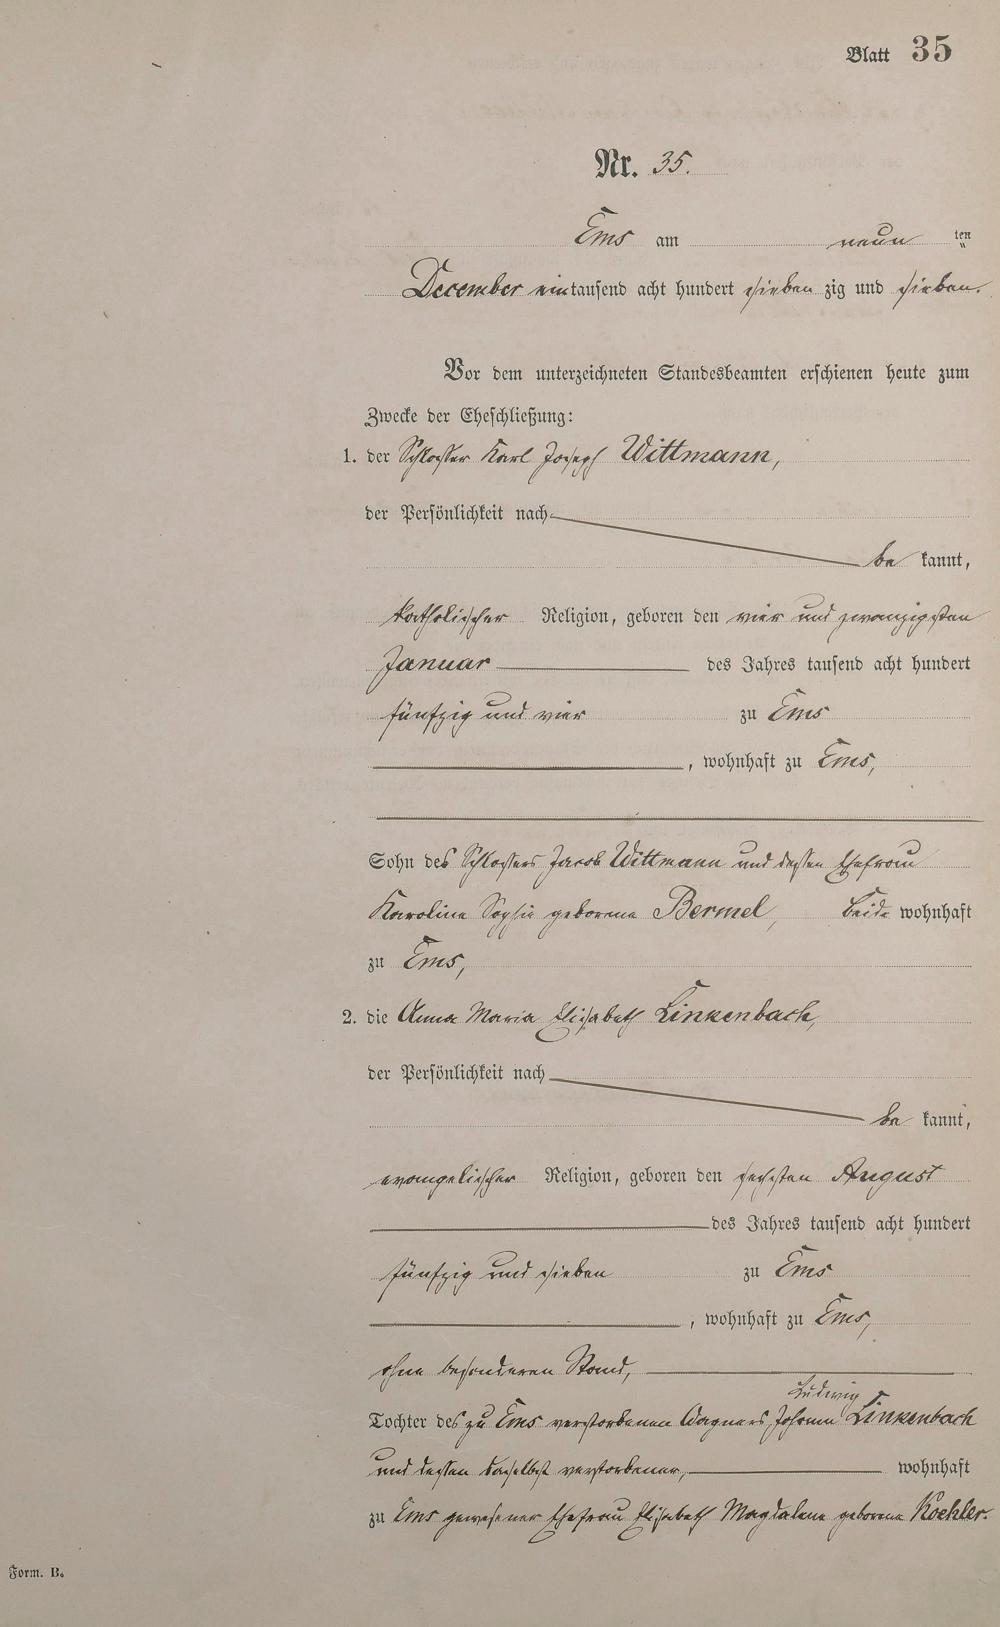 Blatt 35
Nr. 35.
Ems am neun ten
December eintausend acht hundert sieben zig und sieben.
Vor dem unterzeichneten Standesbeamten erschienen heute zum
Zwecke der Eheschließung:
1. der Schlosser Karl Joseph Wittmann,
der Persönlichkeit nach
be kannt,
katholischer Religion, geboren den vier und zwanzigsten
Januar des Jahres tausend acht hundert
fünfzig und vier zu Ems
, wohnhaft zu Ems,
Sohn des Schlossers Jacob Wittmann und dessen Ehefrau
Karoline Sophie geborene Bermel, beide wohnhaft
zu Ems,
2. die Anna Maria Elisabeth Linkenbach,
der Persönlichkeit nach
be kannt,
evangelischer Religion, geboren den sechsten August
des Jahres tausend acht hundert
fünfzig und sieben zu Ems
, wohnhaft zu Ems,
ohne besonderen Stand,
Ludwig
Tochter des zu Ems verstorbenen Wagners Johann Linkenbach
und dessen daselbst verstorbener, wohnhaft
zu Ems gewesener Ehefrau Elisabeth Magdalena geborene Koehler.
Form. B.